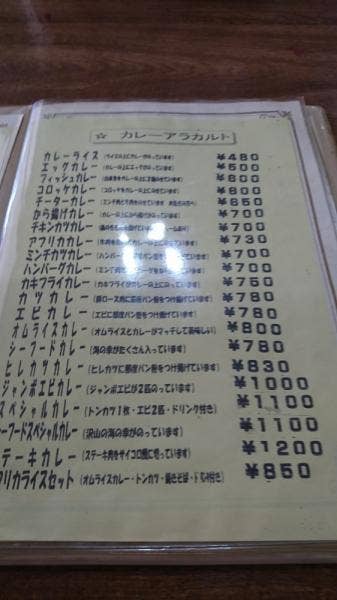 ☆ カレーアラカルト
カレーライス (ライスの上にカレーがのっています) ¥480
エッグカレー ¥500
フィッシュカレー ¥600
コロッケカレー (コロッケをカレーの上にのせています) ¥600
チーターカレー ¥800
から揚げカレー ¥700
チキンカツカレー ¥700
アフリカカレー ¥730
ミンチカツカレー ¥700
ハンバーグカレー ¥700
カキフライカレー (カキフライがカレーの上にのっています) ¥750
カツカレー (豚ロース肉に銀座パン粉をつけ揚げています) ¥780
エビカレー (エビに銀座パン粉をつけ揚げています) ¥780
オムライスカレー (オムライスとカレーがマッチして美味しい) ¥800
シーフードカレー (海の幸がたくさん入っています) ¥780
ヒレカツカレー (ヒレカツに銀座パン粉をつけ揚げています) ¥830
ジャンボエビカレー (ジャンボエビが2匹のっています) ¥1000
スペシャルカレー (トンカツ1枚・エビ2匹・ドリンク付き) ¥1100
ーフードスペシャルカレー (沢山の海の幸がのっています) ¥1100
テーキカレー (ステーキ肉をサイコロ風に切っています) ¥1200
フリカライスセット (オムライスカレー・トンカツ・焼きそば・ドリンク付き) ¥850